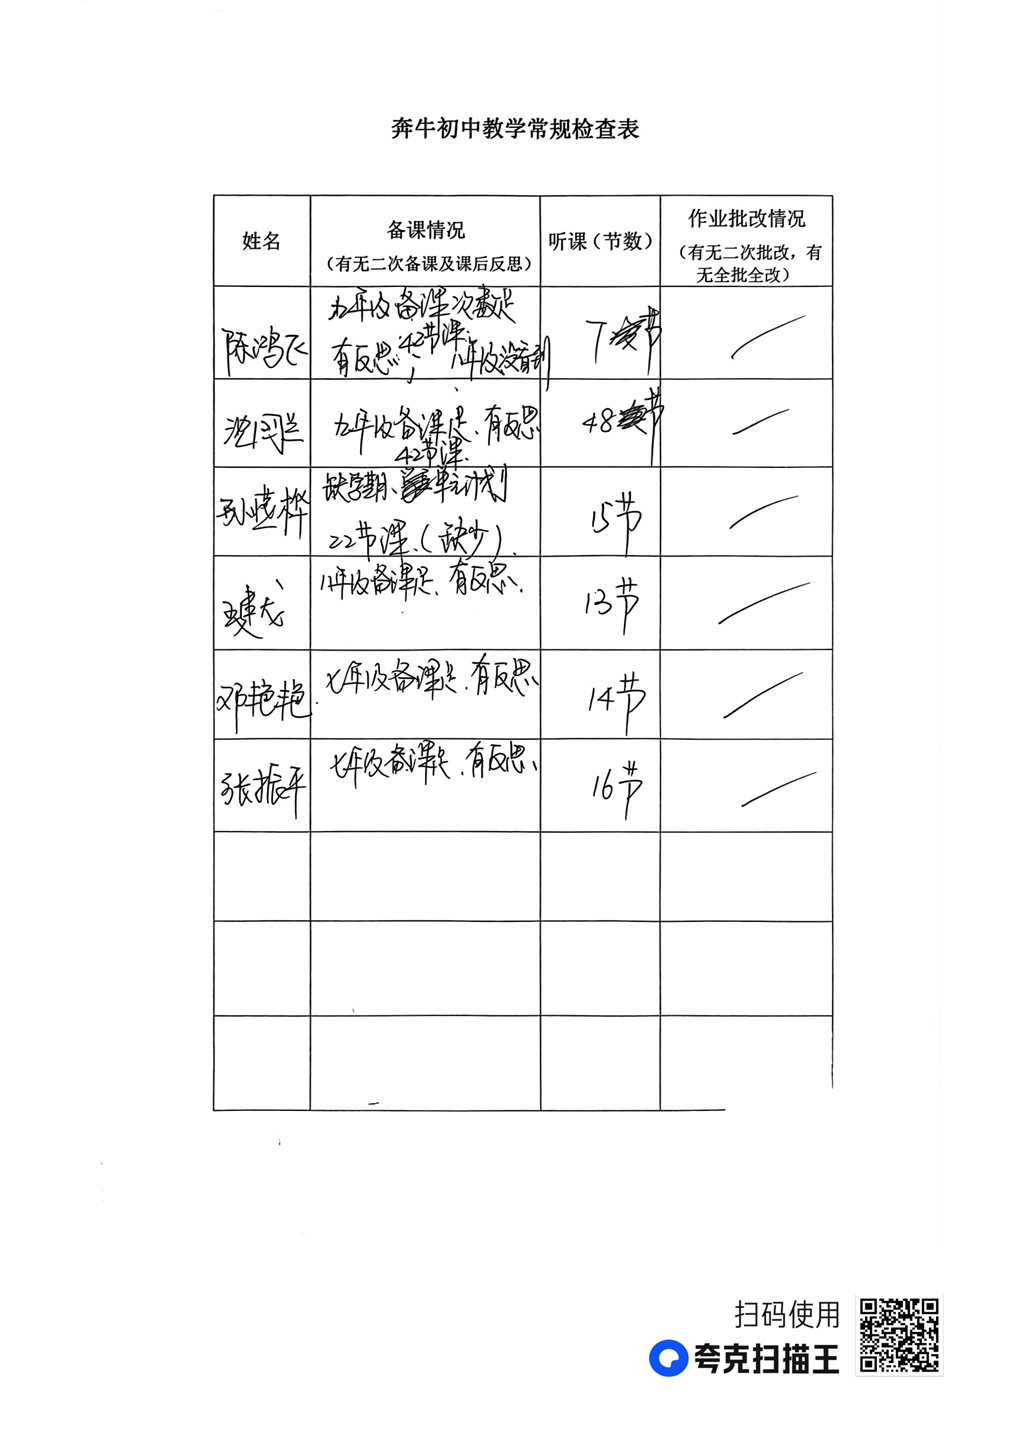 奔牛初中教学常规检查表
姓名
备课情况
（有无二次备课及课后反思）
听课（节数）
作业批改情况
（有无二次批改，有
无全批全改）
陈鸿飞
九年级备课次数足
42节课.
有反思; 八年级没看到
7节
沈国兰
九年级备课足、有反思
42节课.
48节
孙
桦
缺学期、单元计划
22节课.（缺少）.
15节
八年级备课足、有反思.
13节
邓艳艳.
七年级备课足.有反思
14节
张振平
七年级备课足.有反思
16节
扫码使用
夸克扫描王